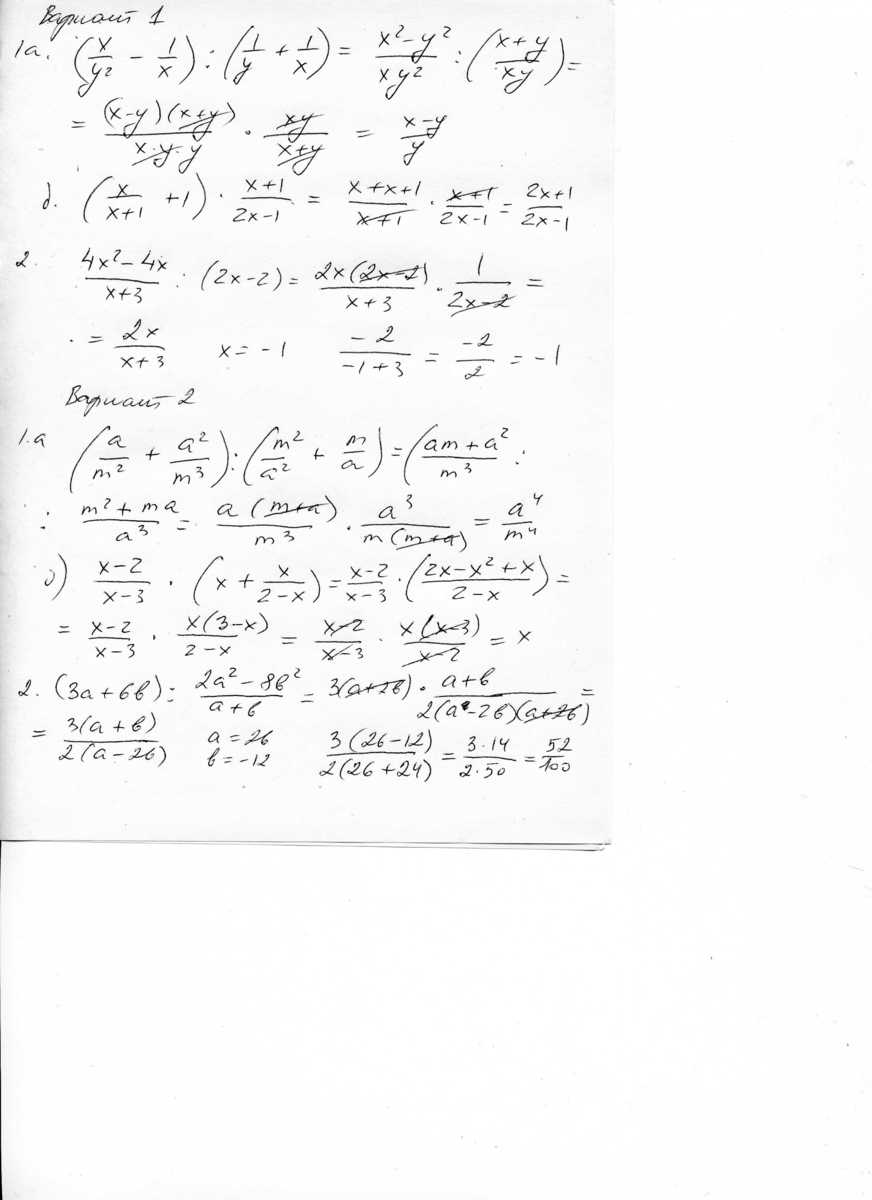 Вариант 1
1а. (x/y² − 1/x) : (1/y + 1/x) = (x²−y²)/(xy²) : ((x+y)/(xy)) =
= ((x−y)(x+y))/(x·y·y) · (xy)/(x+y) = (x−y)/y
б. (x/(x+1) + 1) · (x+1)/(2x−1) = (x+x+1)/(x+1) · (x+1)/(2x−1) = (2x+1)/(2x−1)
2. (4x²−4x)/(x+3) : (2x−2) = (2x(2x−2))/(x+3) · 1/(2x−2) =
· = 2x/(x+3) x = −1 (−2)/(−1+3) = (−2)/2 = −1
Вариант 2
1.а (a/m² + a²/m³) : (m²/a² + m/a) = ((am+a²)/m³ :
: (m²+ma)/a³ = (a(m+a))/m³ · a³/(m(m+a)) = a⁴/m⁴
б) (x−2)/(x−3) · (x + x/(2−x)) = (x−2)/(x−3) · ((2x−x²+x)/(2−x)) =
= (x−2)/(x−3) · (x(3−x))/(2−x) = (x−2)/(x−3) · (x(x−3))/(x−2) = x
2. (3a+6b) : (2a²−8b²)/(a+b) = 3(a+2b) · (a+b)/(2(a−2b)(a+2b)) =
= (3(a+b))/(2(a−2b)) a = 26 b = −12 (3(26−12))/(2(26+24)) = (3·14)/(2·50) = 52/100